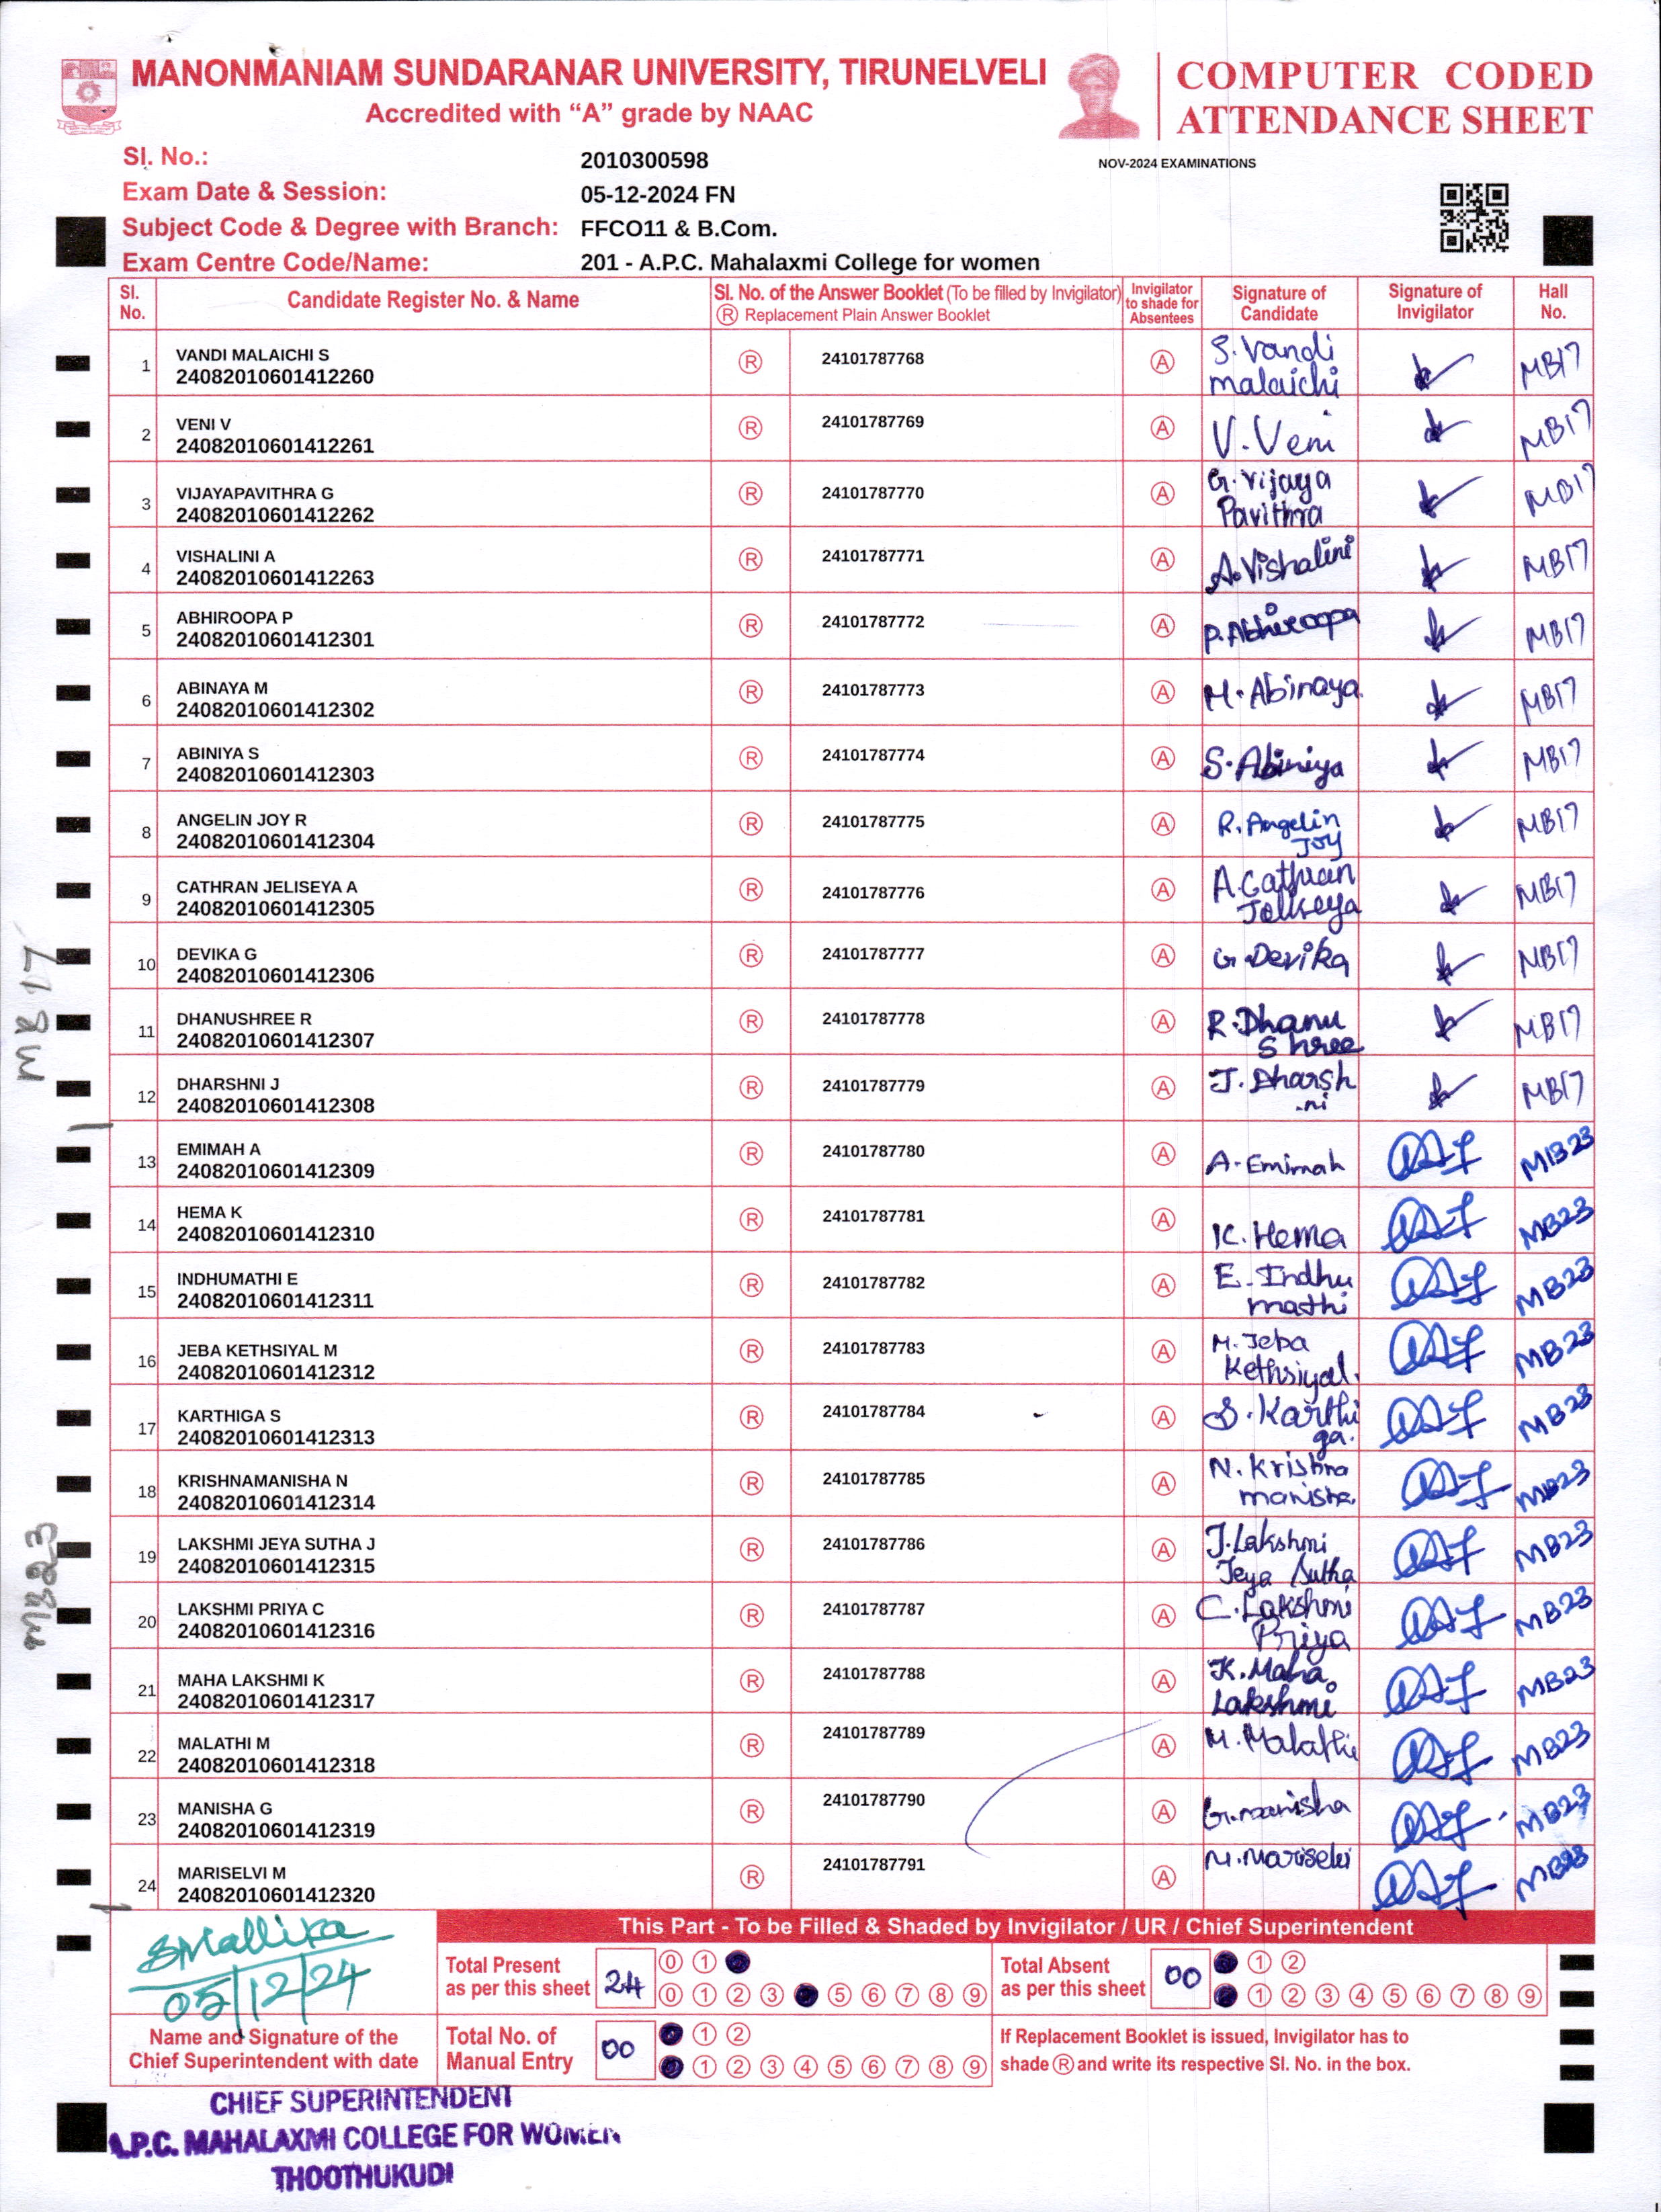 MANONMANIAM SUNDARANAR UNIVERSITY, TIRUNELVELI
Accredited with “A” grade by NAAC
COMPUTER CODED
ATTENDANCE SHEET
NOV-2024 EXAMINATIONS
Sl. No.: 2010300598
Exam Date & Session: 05-12-2024 FN
Subject Code & Degree with Branch: FFCO11 & B.Com.
Exam Centre Code/Name: 201 - A.P.C. Mahalaxmi College for women
Sl. No. Candidate Register No. & Name Sl. No. of the Answer Booklet (To be filled by Invigilator) Ⓡ Replacement Plain Answer Booklet Invigilator to shade for Absentees Signature of Candidate Signature of Invigilator Hall No.
1 VANDI MALAICHI S 24082010601412260 Ⓡ 24101787768 Ⓐ S.Vandi malaichi MB17
2 VENI V 24082010601412261 Ⓡ 24101787769 Ⓐ V.Veni MB17
3 VIJAYAPAVITHRA G 24082010601412262 Ⓡ 24101787770 Ⓐ G.Vijaya Pavithra MB17
4 VISHALINI A 24082010601412263 Ⓡ 24101787771 Ⓐ A.Vishalini MB17
5 ABHIROOPA P 24082010601412301 Ⓡ 24101787772 Ⓐ P.Abhiroopa MB17
6 ABINAYA M 24082010601412302 Ⓡ 24101787773 Ⓐ M.Abinaya MB17
7 ABINIYA S 24082010601412303 Ⓡ 24101787774 Ⓐ S.Abiniya MB17
8 ANGELIN JOY R 24082010601412304 Ⓡ 24101787775 Ⓐ R.Angelin Joy MB17
9 CATHRAN JELISEYA A 24082010601412305 Ⓡ 24101787776 Ⓐ A.Cathran Jeliseya MB17
10 DEVIKA G 24082010601412306 Ⓡ 24101787777 Ⓐ G.Devika MB17
11 DHANUSHREE R 24082010601412307 Ⓡ 24101787778 Ⓐ R.Dhanu Shree MB17
12 DHARSHNI J 24082010601412308 Ⓡ 24101787779 Ⓐ J.Dharsh -ni MB17
13 EMIMAH A 24082010601412309 Ⓡ 24101787780 Ⓐ A.Emimah MB23
14 HEMA K 24082010601412310 Ⓡ 24101787781 Ⓐ K.Hema MB23
15 INDHUMATHI E 24082010601412311 Ⓡ 24101787782 Ⓐ E.Indhu mathi MB23
16 JEBA KETHSIYAL M 24082010601412312 Ⓡ 24101787783 Ⓐ M.Jeba Kethsiyal. MB23
17 KARTHIGA S 24082010601412313 Ⓡ 24101787784 Ⓐ S.Karthi ga. MB23
18 KRISHNAMANISHA N 24082010601412314 Ⓡ 24101787785 Ⓐ N.Krishna manisha MB23
19 LAKSHMI JEYA SUTHA J 24082010601412315 Ⓡ 24101787786 Ⓐ J.Lakshmi Jeya Sutha MB23
20 LAKSHMI PRIYA C 24082010601412316 Ⓡ 24101787787 Ⓐ C.Lakshmi Priya MB23
21 MAHA LAKSHMI K 24082010601412317 Ⓡ 24101787788 Ⓐ K.Maha Lakshmi MB23
22 MALATHI M 24082010601412318 Ⓡ 24101787789 Ⓐ M.Malathi MB23
23 MANISHA G 24082010601412319 Ⓡ 24101787790 Ⓐ G.manisha MB23
24 MARISELVI M 24082010601412320 Ⓡ 24101787791 Ⓐ M.Mariselvi MB23
MB17
MB23
This Part - To be Filled & Shaded by Invigilator / UR / Chief Superintendent
SMallika
05/12/24
Name and Signature of the
Chief Superintendent with date
Total Present as per this sheet 24
0 1
0 1 2 3 5 6 7 8 9
Total Absent as per this sheet 00
1 2
1 2 3 4 5 6 7 8 9
Total No. of Manual Entry 00
1 2
1 2 3 4 5 6 7 8 9
If Replacement Booklet is issued, Invigilator has to
shade Ⓡ and write its respective Sl. No. in the box.
CHIEF SUPERINTENDENT
A.P.C. MAHALAXMI COLLEGE FOR WOMEN
THOOTHUKUDI